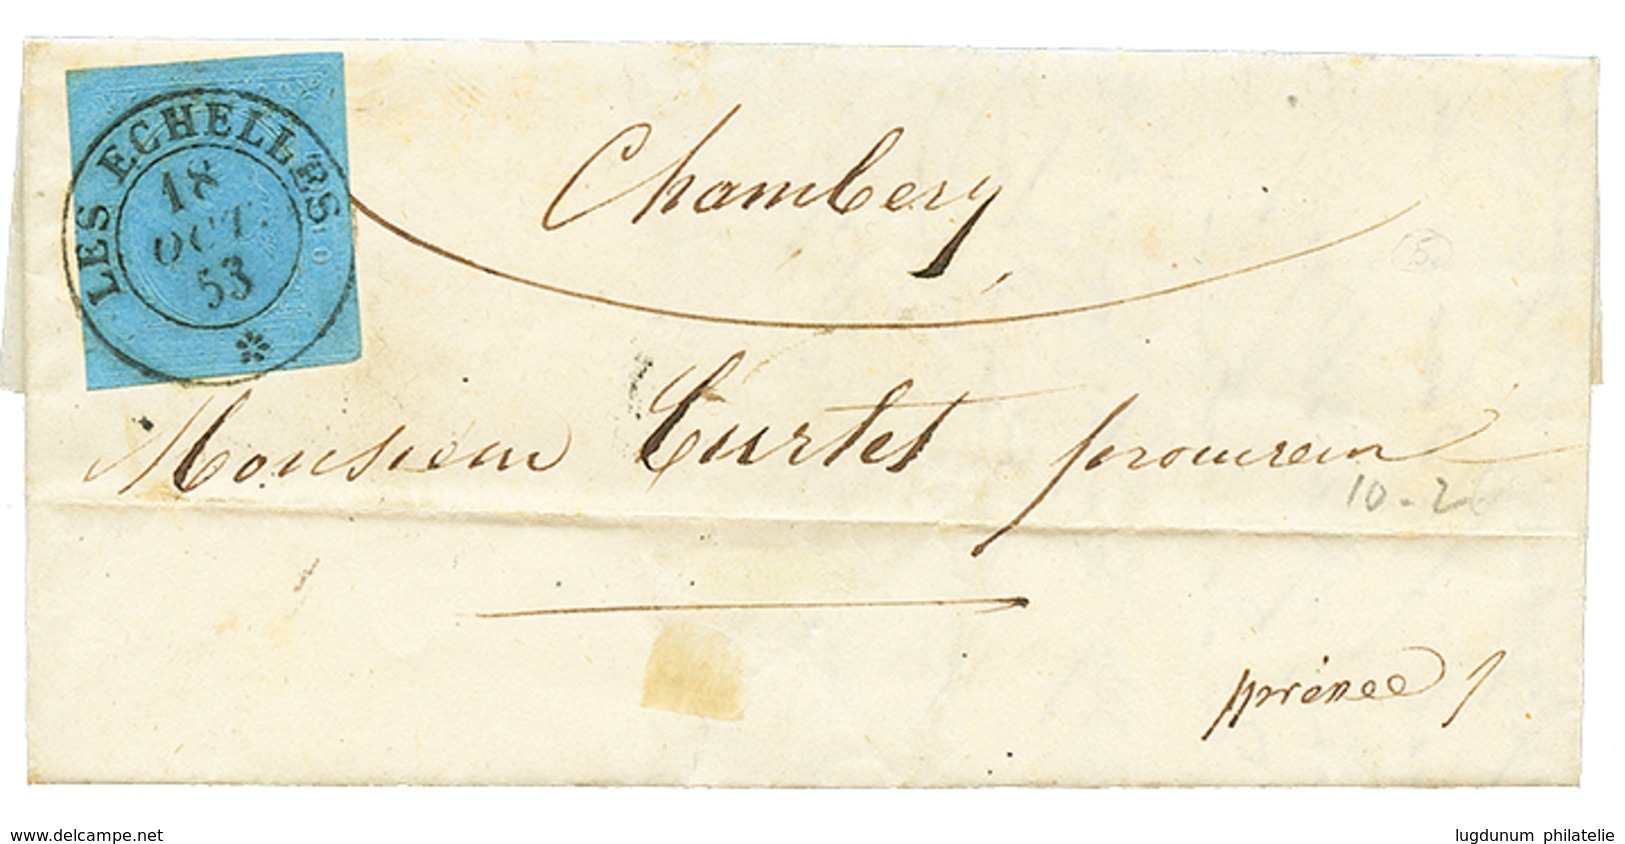 LES ECHELLES
18
OCT.
53
Chambery
Monsieur Curtet procureur
10-2
5
www.delcampe.net
lugdunum philatelie